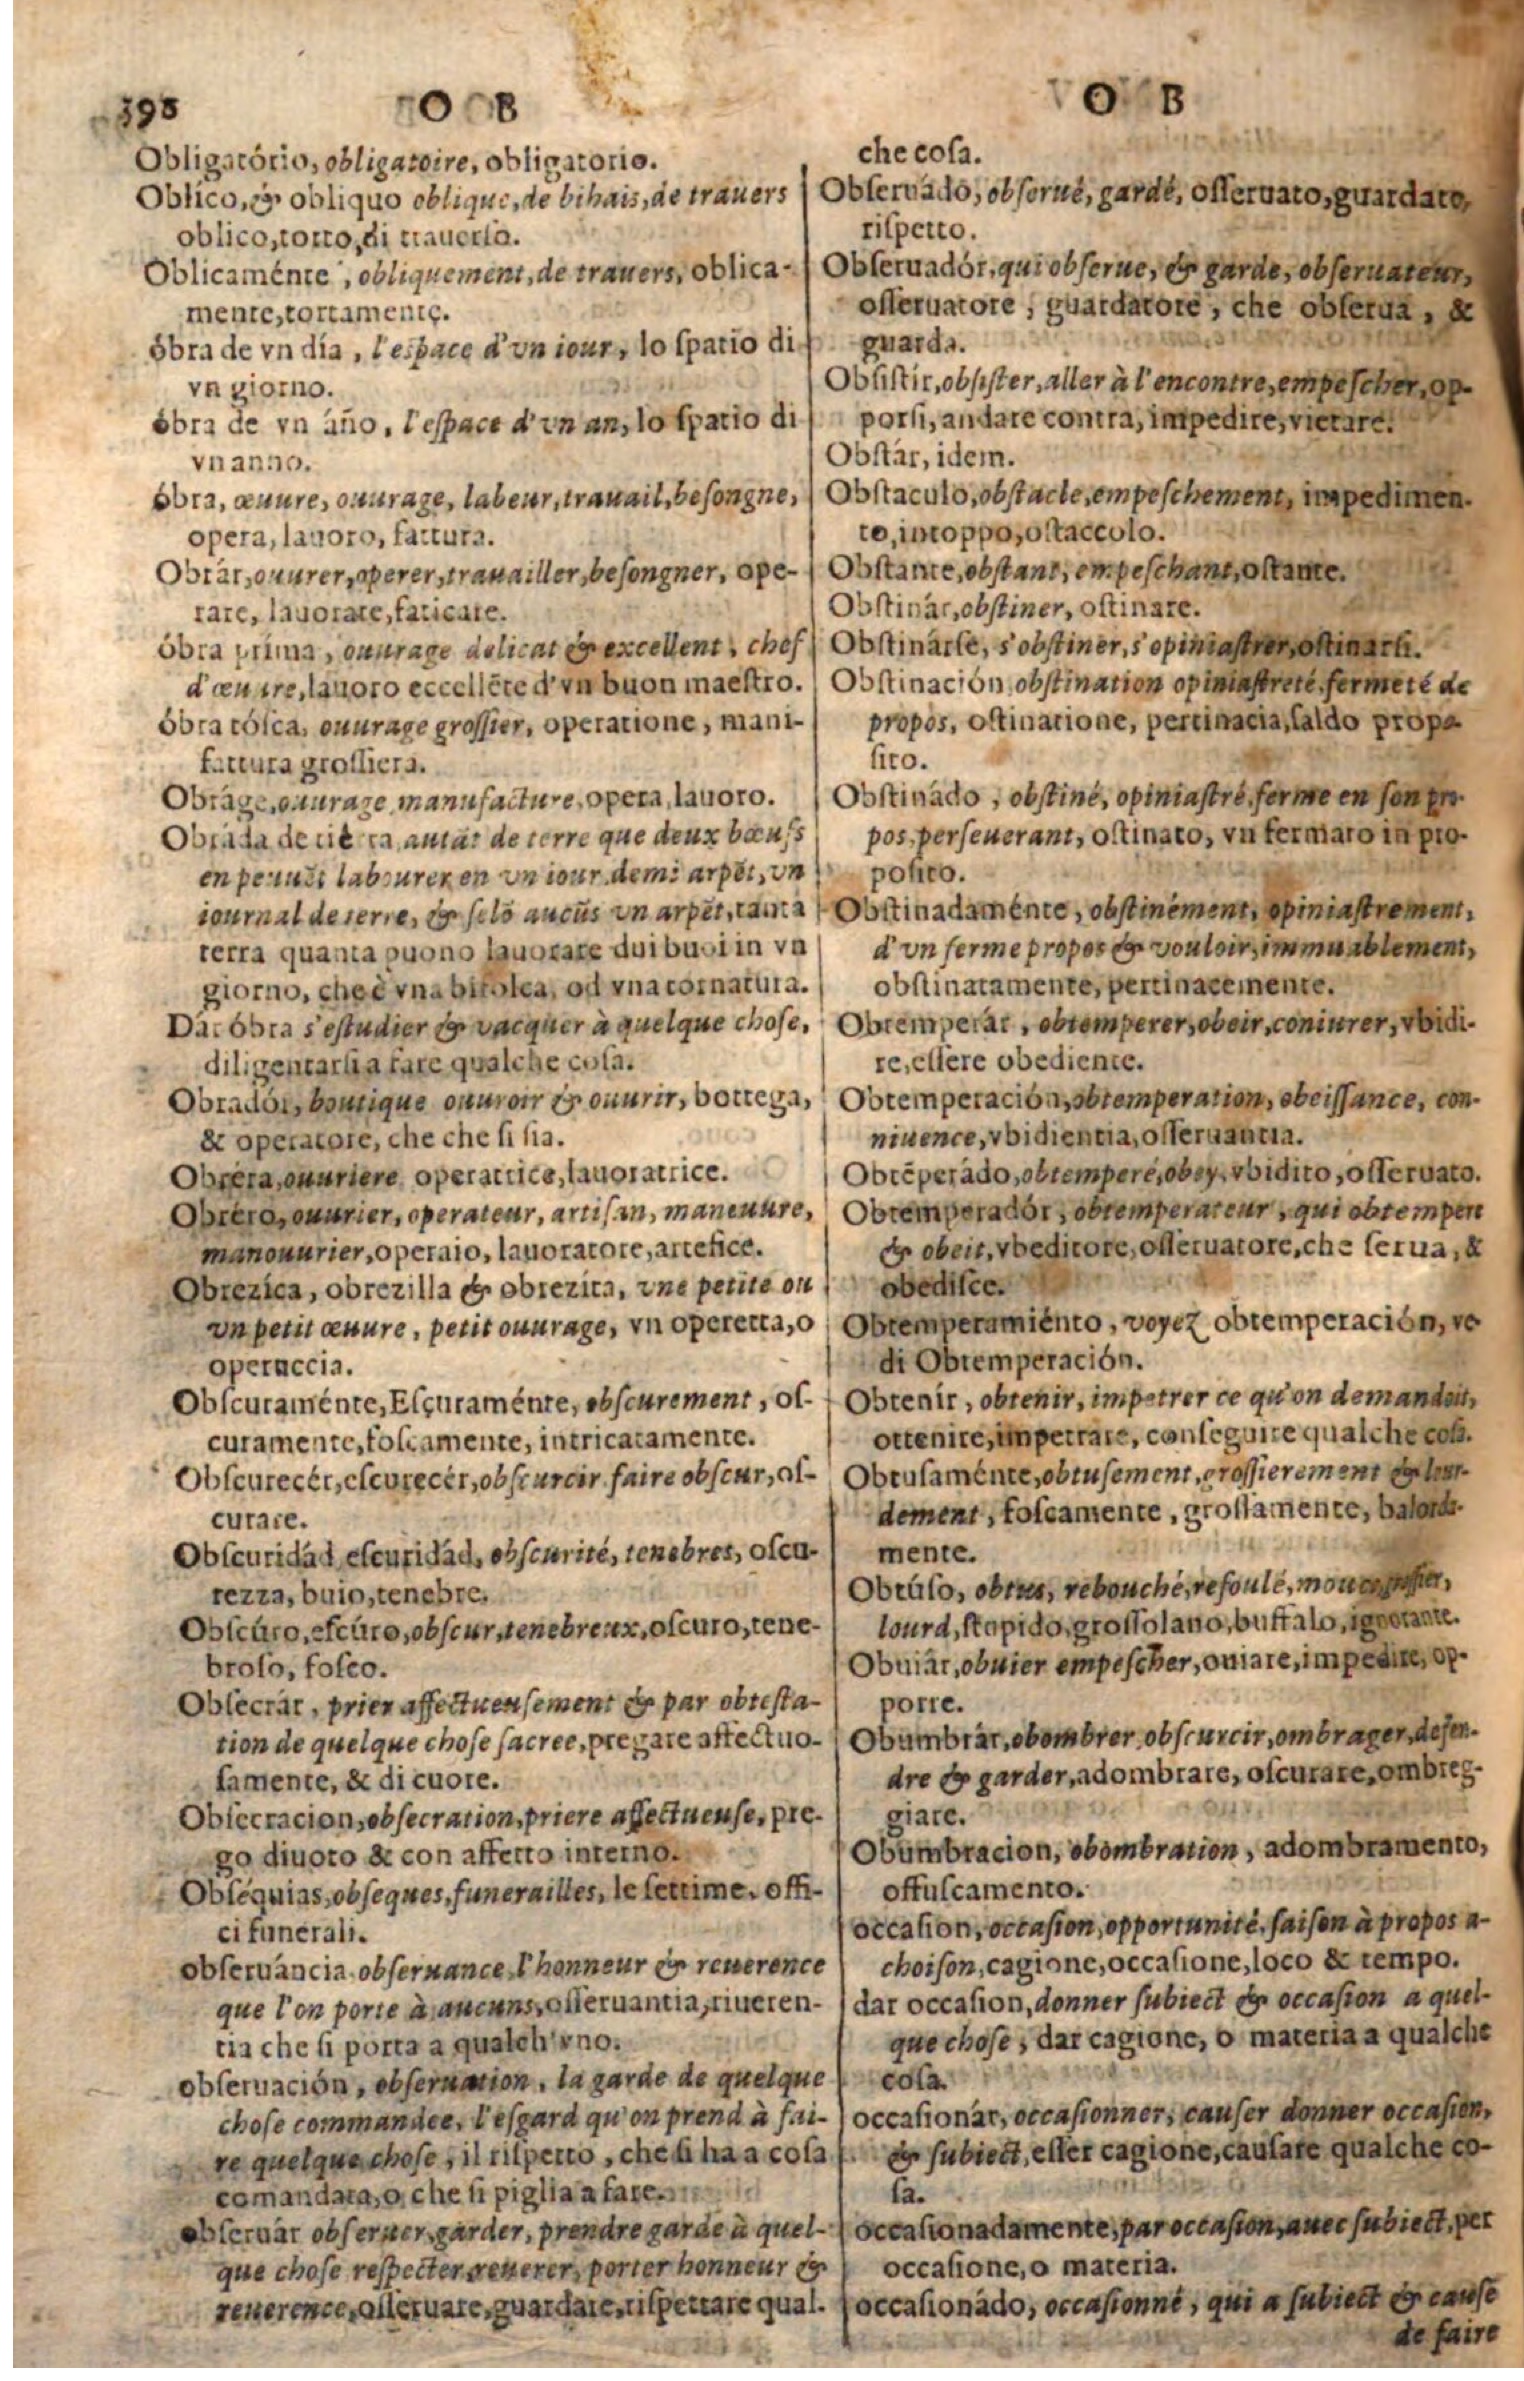 398 O B
Obligatório, obligatoire, obligatorio.
Oblíco, & obliquo oblique, de bihais, de trauers
oblico, torto, di trauerso.
Oblicaménte, obliquement, de trauers, oblica-
mente, tortamente.
óbra de vn día, l'espace d'vn iour, lo spatio di
vn giorno.
óbra de vn áño, l'espace d'vn an, lo spatio di
vn anno.
óbra, œuure, ouurage, labeur, trauail, besongne,
opera, lauoro, fattura.
Obrár, ouurer, operer, trauailler, besongner, ope-
rare, lauorare, faticare.
óbra príma, ouurage delicat & excellent, chef
d'œuure, lauoro eccellẽte d'vn buon maestro.
óbra tósca, ouurage grossier, operatione, mani-
fattura grossiera.
Obráge, ouurage manufacture, opera, lauoro.
Obráda de tiérra autãt de terre que deux bœufs
en peuuẽt labourer en vn iour demi arpẽt, vn
iournal de terre, & selõ aucũs vn arpẽt, tanta
terra quanta puono lauorare dui buoi in vn
giorno, che è vna bifolca, od vna tornatura.
Dár óbra s'estudier & vacquer à quelque chose,
diligentarsi a fare qualche cosa.
Obradór, boutique ouuroir & ouurir, bottega,
& operatore, che che si sia.
Obréra, ouuriere operatrice, lauoratrice.
Obréro, ouurier, operateur, artisan, maneuure,
manouurier, operaio, lauoratore, artefice.
Obrezíca, obrezilla & obrezita, vne petite ou
vn petit œuure, petit ouurage, vn operetta, o
operuccia.
Obscuraménte, Esçuraménte, obscurement, os-
curamente, foscamente, intricatamente.
Obscurecér, escurecér, obscurcir faire obscur, os-
curare.
Obscuridád escuridád, obscurité, tenebres, oscu-
rezza, buio, tenebre.
Obscúro, escúro, obscur, tenebreux, oscuro, tene-
broso, fosco.
Obsecrár, prier affectueusement & par obtesta-
tion de quelque chose sacree, pregare affectuo-
samente, & di cuore.
Obsecracion, obsecration, priere affectueuse, pre-
go diuoto & con affetto interno.
Obséquias, obseques, funerailles, le settime, offi-
ci funerali.
obseruáncia obseruance, l'honneur & reuerence
que l'on porte à aucuns, osseruantia, riueren-
tia che si porta a qualch'vno.
obseruación, obseruation, la garde de quelque
chose commandee, l'esgard qu'on prend à fai-
re quelque chose, il rispetto, che si ha a cosa
comandata, o che si piglia a fare.
obseruár obseruer, garder, prendre garde à quel-
que chose respecter reuerer, porter honneur &
reuerence, osseruare, guardare, rispettare qual-
O B
che cosa.
Obseruádo, obserué, gardé, osseruato, guardato,
rispetto.
Obseruadór, qui obserue, & garde, obseruateur,
osseruatore, guardatore, che obserua, &
guarda.
Obsistír, obsister, aller à l'encontre, empescher, op-
porsi, andare contra, impedire, vietare.
Obstár, idem.
Obstaculo, obstacle, empeschement, impedimen-
to, intoppo, ostaccolo.
Obstante, obstant, empeschant, ostante.
Obstinár, obstiner, ostinare.
Obstinárse, s'obstiner, s'opiniastrer, ostinarsi.
Obstinación, obstination opiniastreté, fermeté de
propos, ostinatione, pertinacia, saldo propo-
sito.
Obstinádo, obstiné, opiniastré, ferme en son pro-
pos, perseuerant, ostinato, vn fermato in pro-
posito.
Obstinadaménte, obstinément, opiniastrement,
d'vn ferme propos & vouloir, immuablement,
obstinatamente, pertinacemente.
Obtemperár, obtemperer, obeir, coniurer, vbidi-
re, essere obediente.
Obtemperación, obtemperation, obeissance, con-
niuence, vbidientia, osseruantia.
Obtẽperádo, obtemperé, obey, vbidito, osseruato.
Obtemperadór, obtemperateur, qui obtempere
& obeit, vbeditore, osseruatore, che serua, &
obedisce.
Obtemperamiénto, voyez obtemperación, ve-
di Obtemperación.
Obtenír, obtenir, impetrer ce qu'on demandoit,
ottenire, impetrare, conseguire qualche cosa.
Obtusaménte, obtusement, grossierement & lour-
dement, foscamente, grossamente, balorda-
mente.
Obtúso, obtus, rebouché, refoulé, mouce, grossier,
lourd, stupido, grossolano, buffalo, ignorante.
Obuiár, obuier empescher, ouiare, impedire, op-
porre.
Obumbrár, obombrer, obscurcir, ombrager, defen-
dre & garder, adombrare, oscurare, ombreg-
giare.
Obumbracion, obombration, adombramento,
offuscamento.
occasion, occasion, opportunité, saison à propos a-
choison, cagione, occasione, loco & tempo.
dar occasion, donner subiect & occasion a quel-
que chose, dar cagione, o materia a qualche
cosa.
occasionár, occasionner, causer donner occasion,
& subiect, esser cagione, causare qualche co-
sa.
occasionadamente, par occasion, auec subiect, per
occasione, o materia.
occasionádo, occasionné, qui a subiect & cause
de faire